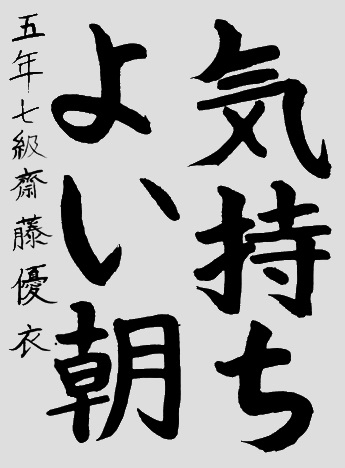 気持ち
よい朝
五年七級齋藤優衣